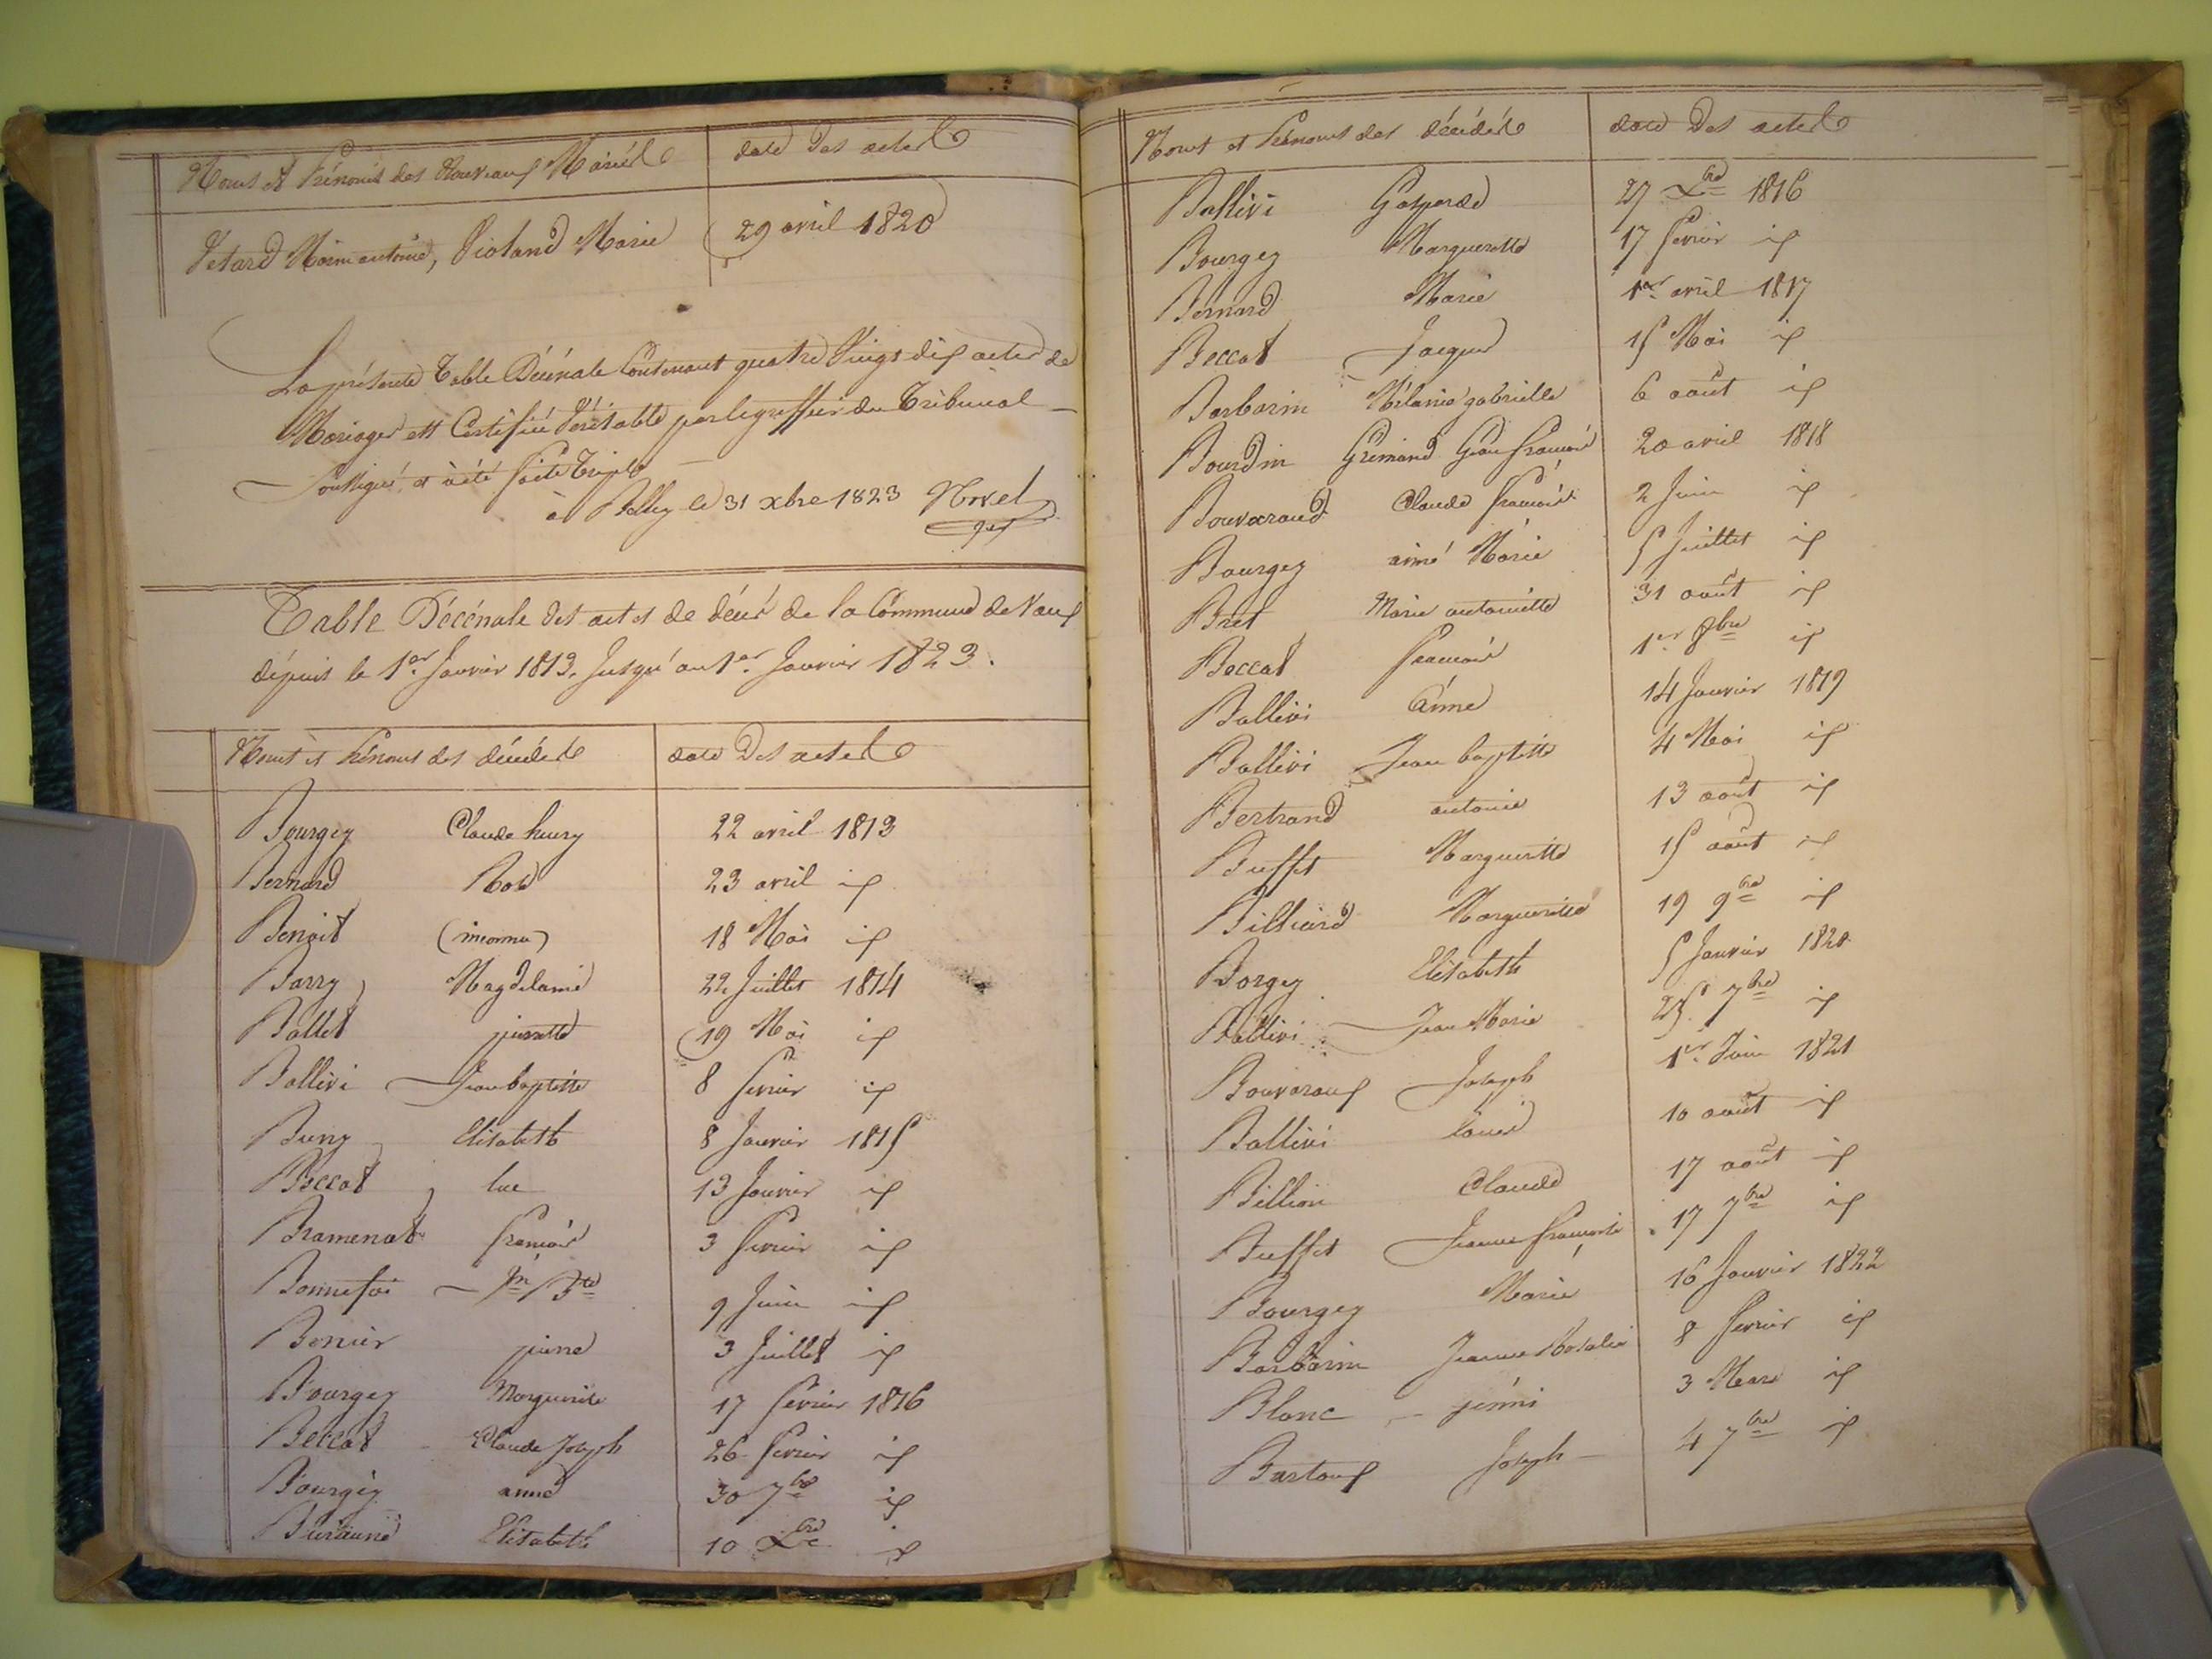 Noms et Prénoms des Nouveaux Mariés date des actes
Vetard Marin antoine, Violand Marie 29 avril 1820
La présente Table Décénale Contenant quatre Vings dix actes de
Mariages est Certifiée Véritable par le greffier du Tribunal
soussigné, et a été faite Triple
à Belley le 31 xbre 1823 Novel
Table Décénale des actes de décés de la Commune de Vaux
dépuis le 1er Janvier 1813, Jusqu'au 1er Janvier 1823.
Noms et Prénoms des décédés date Des actes
Bourgey Claude henry 22 avril 1813
Bernard Rose 23 avril id
Benoit (inconnu) 18 Mai id
Barry, Magdelaine 22 Juillet 1814
Ballet pierrette 19 Mai id
Ballivi Jean baptiste 8 fevrier id
Buny Elisabeth 8 Janvier 1815
Beccat, luc 13 Janvier id
Bramenat francois 3 fevrier id
Bonnefoi Jn Bte 9 Juin id
Bonier pierre 3 Juillet id
Bourgey Marguerite 17 fevrier 1816
Beccat Claude Joseph 26 fevrier id
Bourgey anne 30 7bre id
Elisabeth 10 Xbre id
Noms et Prénoms des décédés date Des actes
Ballivi Gasparde 27 Xbre 1816
Bourgey Marguerette 17 fevrier id
Bernard Marie 1er avril 1817
Beccat Jacques 15 Mai id
Barbarin Mélanie gabrielle 6 août id
Bourdin Grimand Jean francois 20 avril 1818
Bouvaraud Claude francois 2 Juin id
Bourgey aimé Marie 5 Juillet id
Bret Marie antoinette 31 août id
Beccat francois 1er 8bre id
Ballivi anne 14 Janvier 1819
Ballivi Jean baptiste 4 Mai id
Bertrand antoine 13 août id
Buffet Margueritte 15 août id
Billiard Margueritte 19 9bre id
Borgey Elisabeth 5 Janvier 1820
Ballivi Jean Marie 25 7bre id
Bouvaraux Joseph 1er Juin 1821
Ballivi louis 10 août id
Billion Claude 17 août id
Buffet Jeanne francoise 17 7bre id
Bourgey Marie 16 Janvier 1822
Barbarin Jeanne Rosalie 8 fevrier id
Blanc jénni 3 Mars id
Bartoux Joseph 4 7bre id